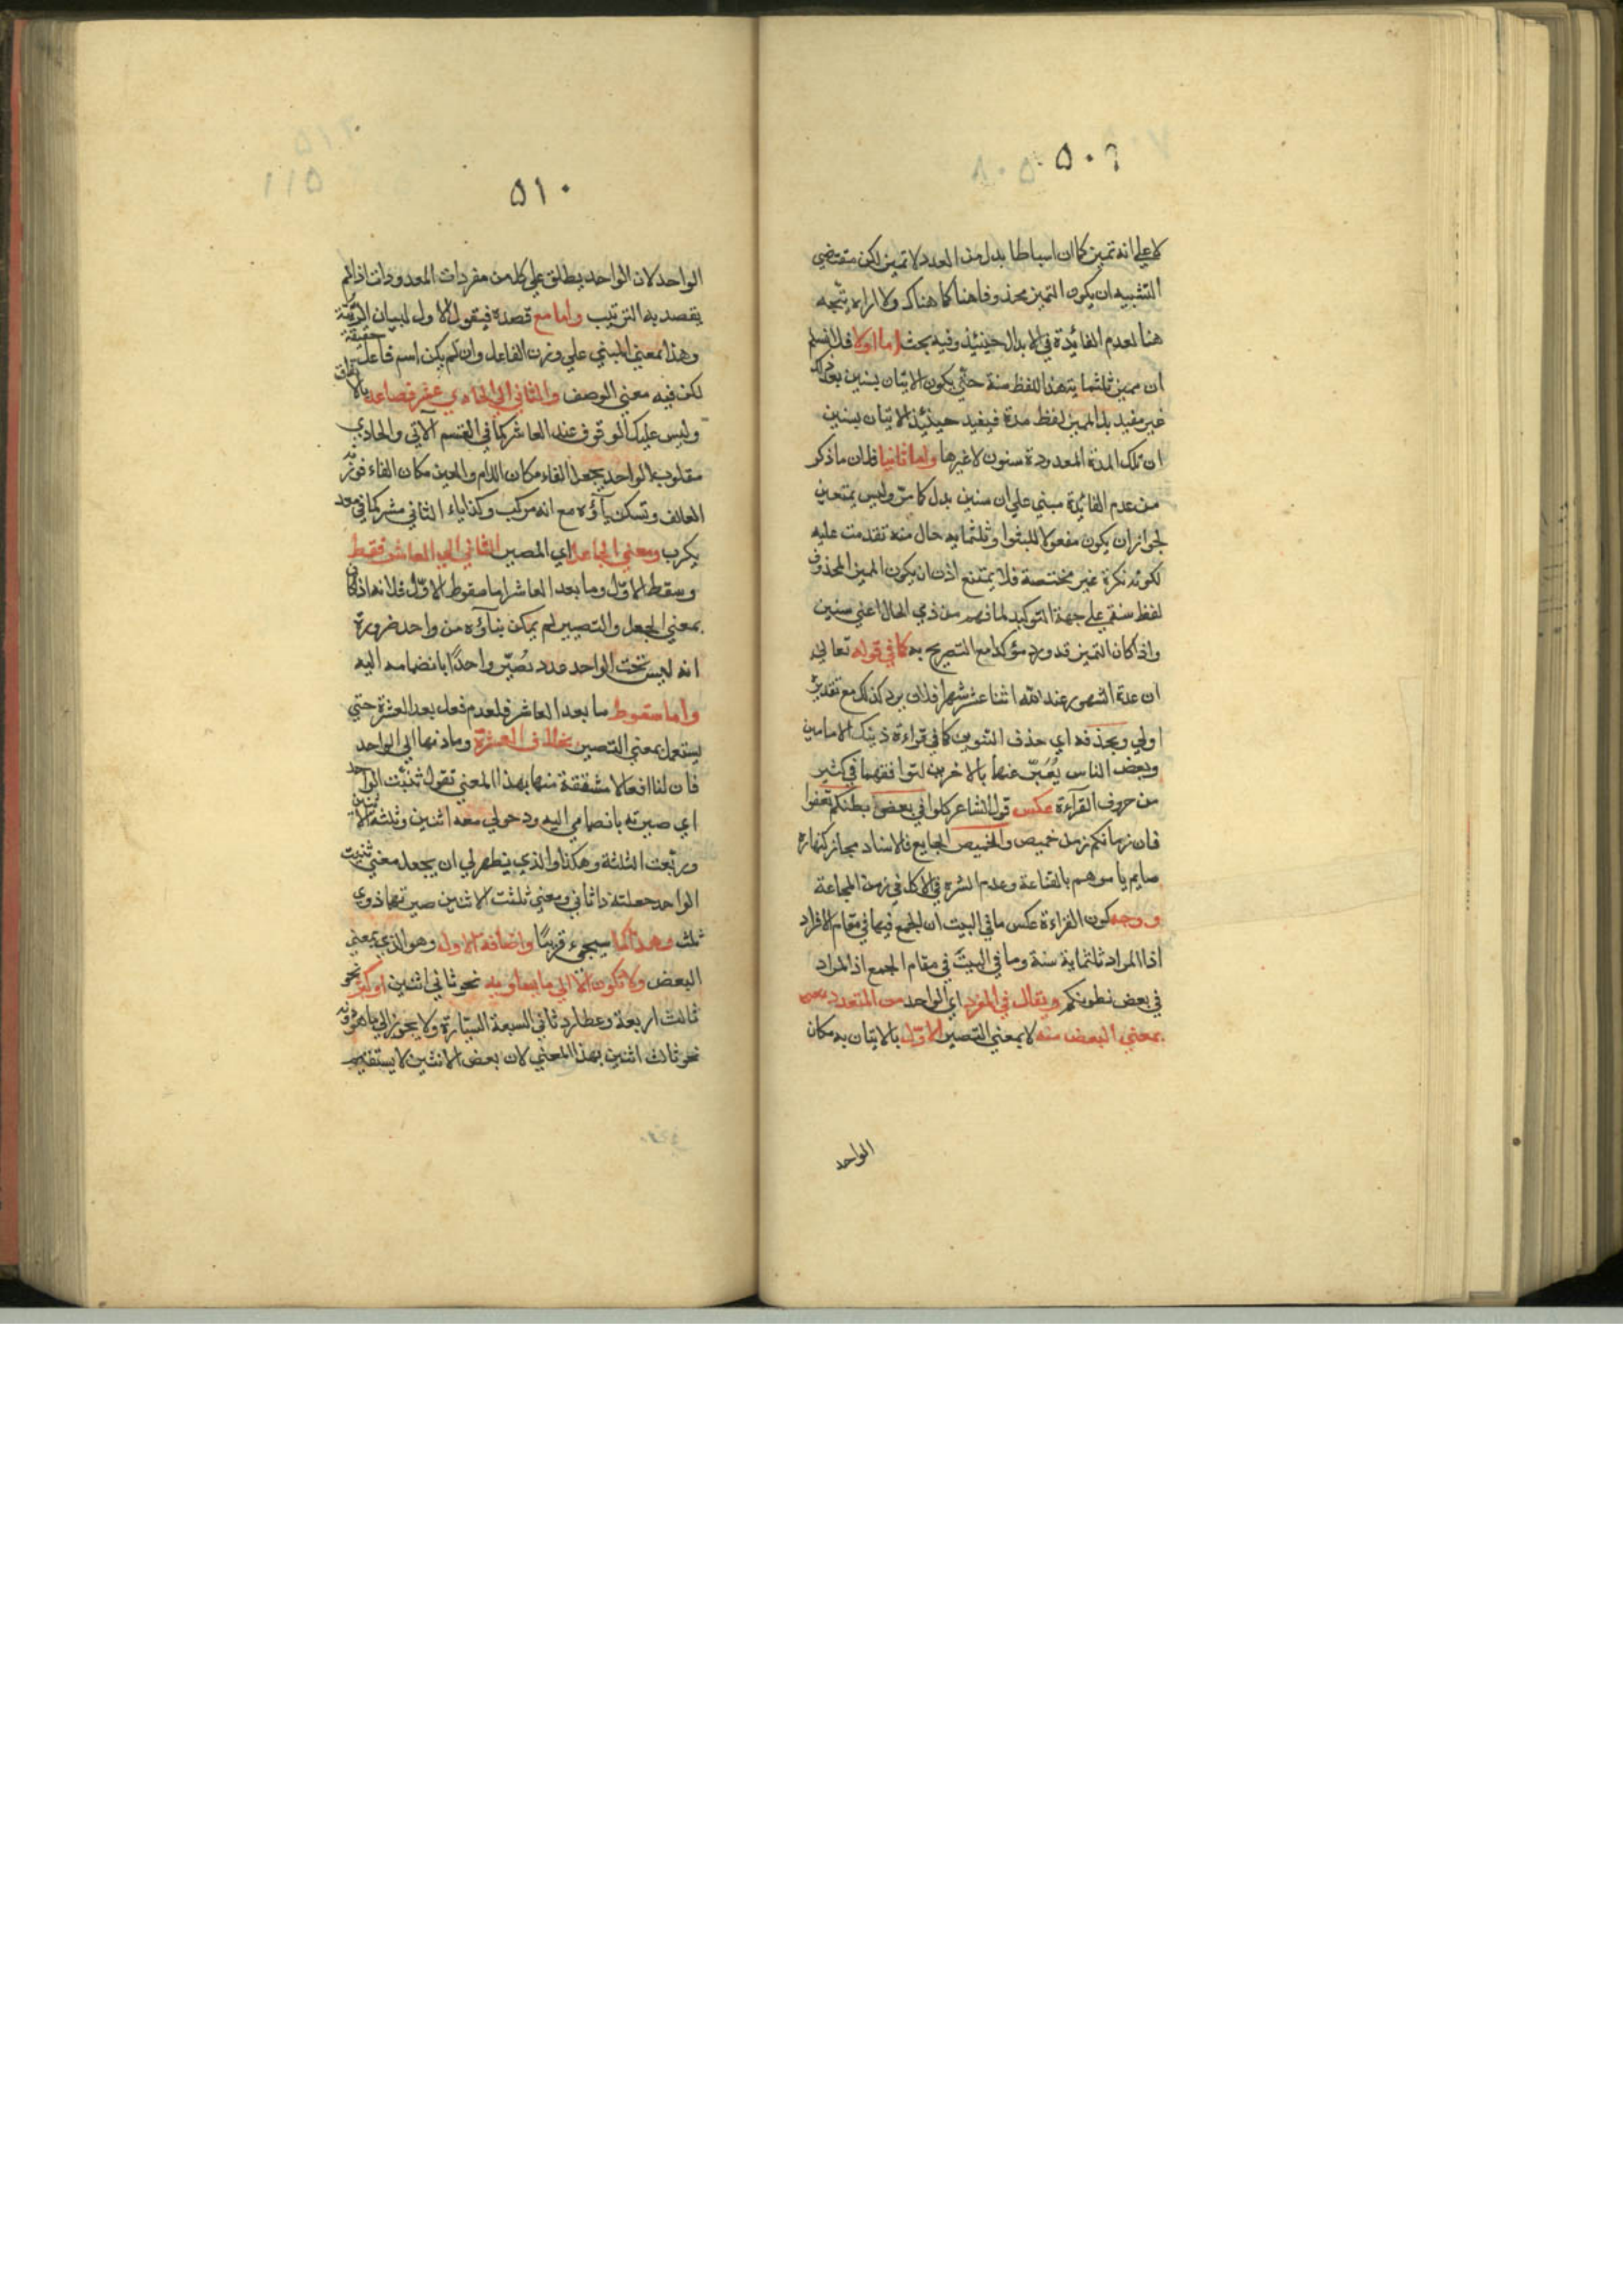 ٥٠٩
لا على انه تميز كما ان اسباطا بدل من العدد لا تميز لكن مقتضى
التشبيه ان يكون التميز محذوفا هنا كما هناك ولا اراه يتجه
هنا لعدم الفائدة في الابدال حينئذ وفيه بحث اما اولا فلا نسلم
ان مميز ثلثمائة هنا لفظ سنة حتى يكون الاتيان بسنين بعد ذلك
غير مفيد بل المميز لفظ مدة فيفيد حينئذ الاتيان بسنين
ان تلك المدة المعدودة سنون لا غيرها واما ثانيا فلان ما ذكر
من عدم الفائدة مبني على ان سنين بدل كما مر وليس بمتعين
لجواز ان يكون مفعولا للبثوا وثلثمايه حال منه تقدمت عليه
لكونه نكرة غير مختصة فلا يمتنع اذن ان يكون المميز المحذوف
لفظ سنة على جهة التوكيد لما فهم من ذي الحال اعني سنين
واذا كان التميز قد ورد مؤكدا مع التصريح به كما في قوله تعالى
ان عدة الشهور عند الله اثنا عشر شهرا فلان يرد كذلك مع تقديره
اولى وبحذفه اي حذف التنوين كما في قراءة ذينك الامامين
وبعض الناس يُعَبّر عنهما بالاخرين لتوافقهما في كثير
من حروف القرآءة عكس قول الشاعر كلوا في بعض بطنكم تعفوا
فان زمانكم زمن خميص والخميص الجايع فالاسناد مجاز كنهاره
صايم يامرهم بالقناعة وعدم الشره في الاكل في زمن المجاعة
ووجه كون القراءة عكس ما في البيت ان الجمع فيها في مقام الافراد
اذ المراد ثلثماية سنة وما في البيت في مقام الجمع اذ المراد
في بعض بطونكم ويقال في المفرد اي الواحد من المتعدد
بمعنى البعض منه لا بمعنى التصيير الاول بالاتيان به مكان
الواحد
٥١٠
الواحد لان الواحد يطلق على كل من مفردات المعدودات اذا لم
يقصد به الترتيب واما مع قصده فيقول الاول لبيان الرتبة
وهذا معنى المبني على وزن الفاعل وان لم يكن اسم فاعل حقيقة
لكن فيه معنى الوصف والثاني الى الحادي عشر فصاعدا بالاتفاق
وليس عليك الوقوف عند العاشر كما في القسم الآتي والحادي
مقلوب الواحد بجعل الفاء مكان اللام والعين مكان الفاء فوزنه
العالف وتسكن يآؤه مع انه مركب وكذا ياء الثاني عشر كما في معد
يكرب ومعنى الجاعل اي المصير الثاني الى العاشر فقط
وسقط الاول وما بعد العاشر اما سقوط الاوّل فلانه اذا كان
بمعنى الجعل والتصيير لم يمكن بنآؤه من واحد ضرورة
انه ليس تحت الواحد عدد يُصَيّر واحدًا بانضمامه اليه
واما سقوط ما بعد العاشر فلعدم فعل بعد العشرة حتى
يستعمل بمعنى التصيير بخلاف العشرة وما دونها الى الواحد
فان لنا افعالا مشتقة منها بهذا المعنى تقول ثنيت الواحد
اي صيرته بانضمامي اليه ودخولي معه اثنين وثلثت الاثنين
وربعت الثلثة وهكذا والذي يظهر لي ان يجعل معنى ثنيت
الواحد جعلته ذا ثاني ومعنى ثلثت الاثنين صيرتهما ذوي
ثلث وهذا كما سيجيء قريبًا واضافة الاول وهو الذي بمعنى
البعض ولا تكون الا الى ما يساويه نحو ثاني اثنين او اكثر نحو
ثالث اربعة وعطارد ثاني السبعة السيّارة ولا يجوز الى ما هو دونه
نحو ثالث اثنين بهذا المعنى لان بعض الاثنين لا يستقيم